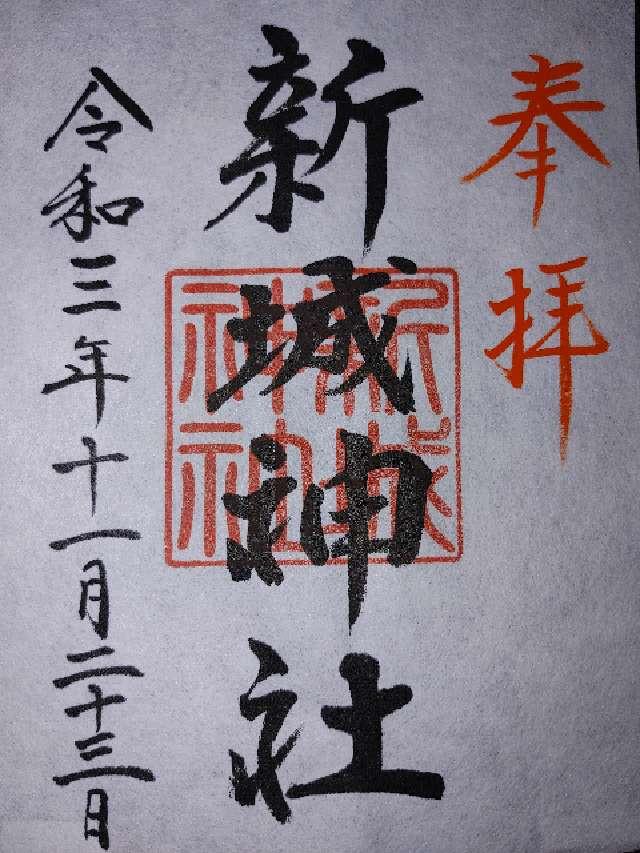 奉拝
新城神社
新城神社
令和三年十一月二十三日